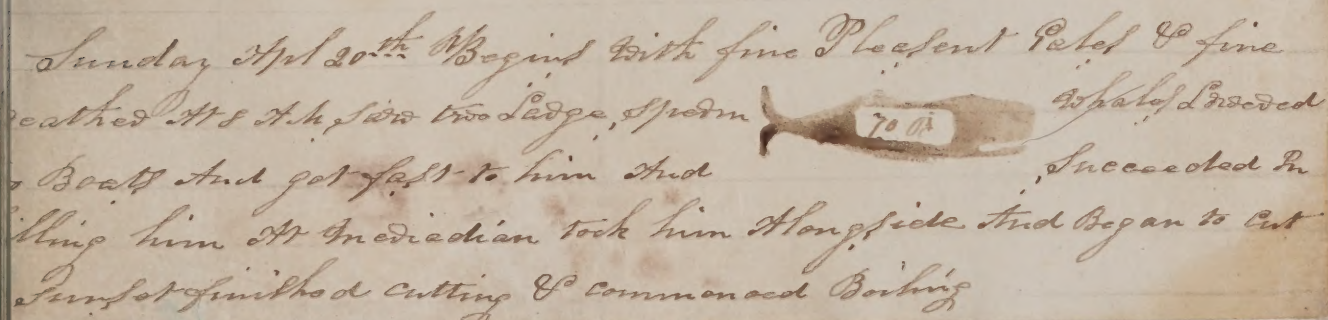 Sunday Apl 20th Begins With fine Pleasent Gales & fine
Weather At 8 A.M. saw two Large sperm Whales Lowered
Boats And got fast to him And Succeeded In
illing him At meridian took him Alongside And Began to cut
Sunset finished cutting & commenced Boiling
70 Bl